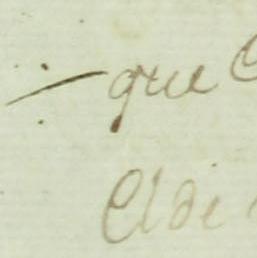 ÷ que
El de